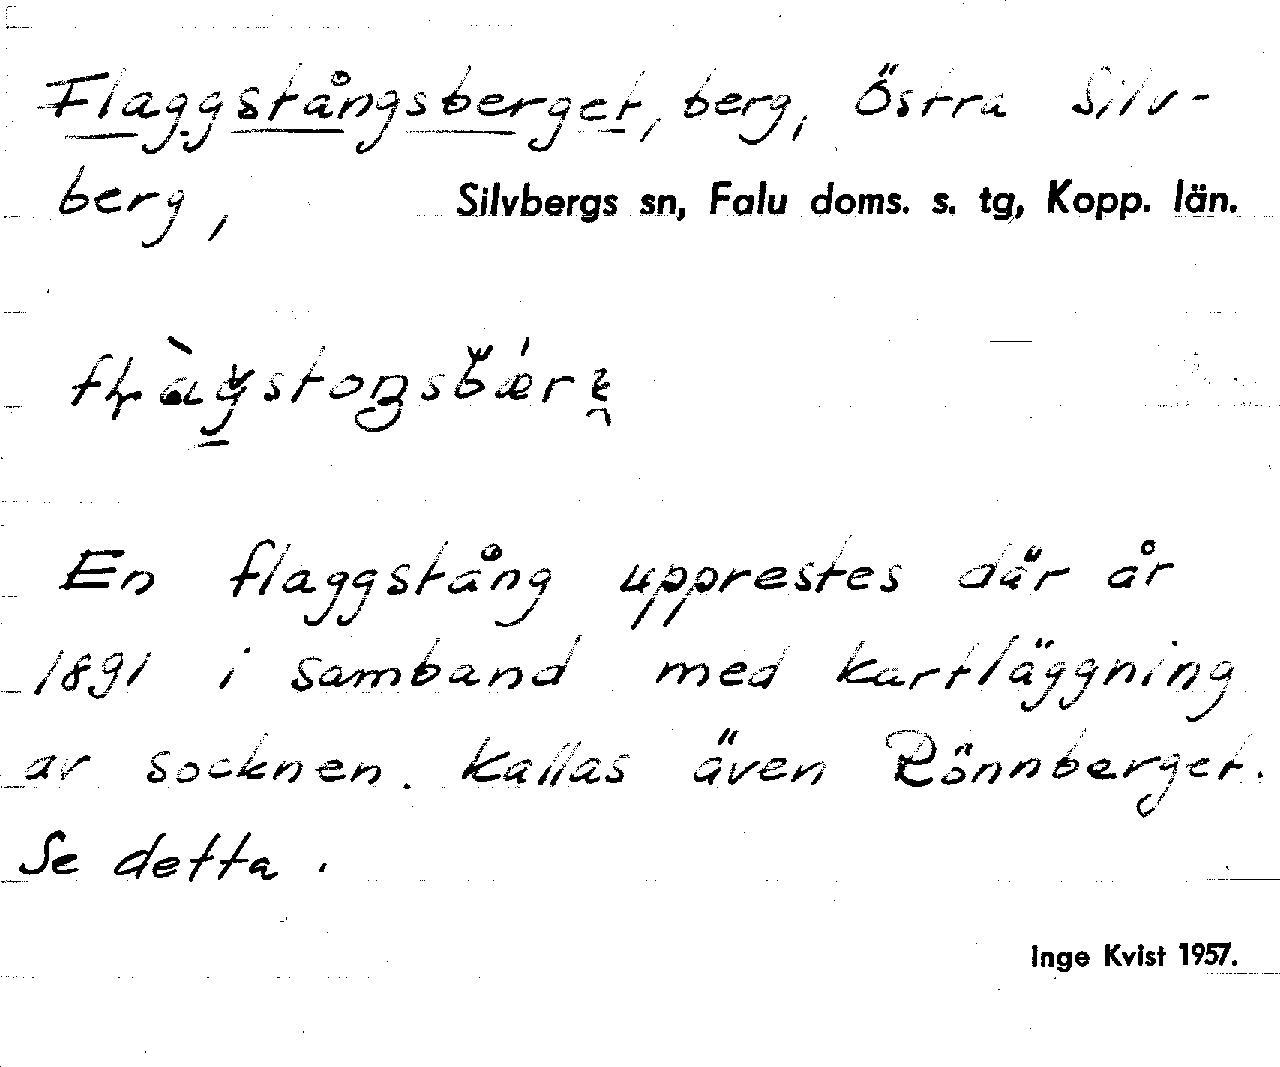 Flaggstångsberget, berg, Östra Silv-
berg, Silvbergs sn, Falu doms. s. tg, Kopp. län.
En flaggstång upprestes där år
1891 i samband med kartläggning
av socknen. Kallas även Rönnberget.
Se detta.
Inge Kvist 1957.